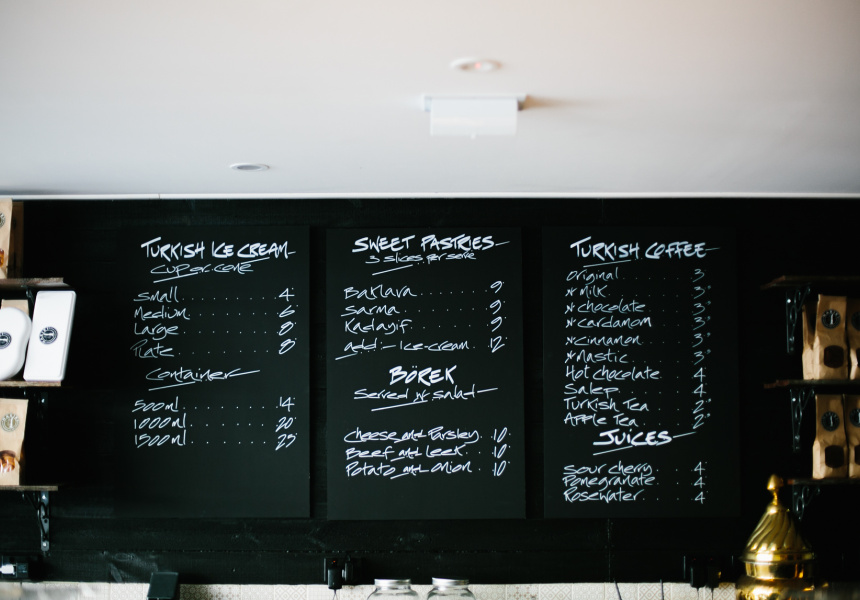 TURKISH ICE CREAM
Cup or cone
Small 4
Medium 6
Large 8
Plate 8
Container
500ml 14
1000ml 20
1500ml 25
SWEET PASTRIES
3 slices per serve
Baklava 9
Sarma 9
Kadayif 9
add - Ice-cream 12
BÖREK
Served w/ salad
Cheese and Parsley 10
Beef and Leek 10
Potato and onion 10
TURKISH COFFEE
Original 3
* Milk 3
* chocolate 3
* cardamom 3
* cinnamon 3
* Mastic 3
Hot chocolate 4
Salep 4
Turkish Tea 2
Apple Tea 2
JUICES
Sour cherry 4
Pomegranate 4
Rosewater 4